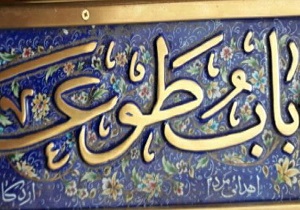 بابُ طوعی
اهدائی مردم اردکا